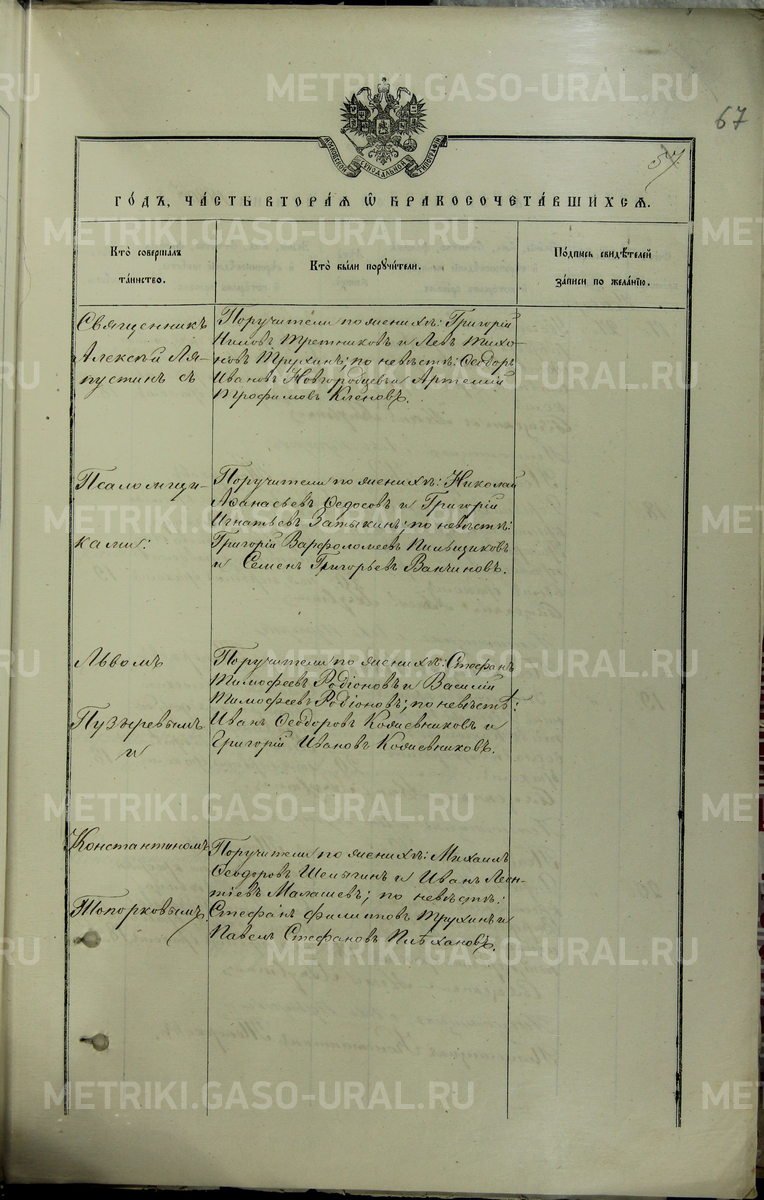 METRIKI.GASO-URAL.RU
67
57.
МОСКОВСКОЙ СѴНОДАЛЬНОЙ ТИПОГРАФІИ
ГО́ДЪ, ЧА́СТЬ ВТОРА́Я Ѡ҆ БРАКОСОЧЕТА́ВШИ́ХСЯ.
Кто̀ соверша́лъ
та́инство.
Кто̀ бы́ли порꙋчи́тели.
По́дпись свидѣ́телей
за́писи по жела́нїю.
Священникъ
Алексѣй Ля-
пустинъ съ
Поручители по женихѣ: Григорій
Ниловъ Третниковъ и Левъ Тихо-
новъ Трухинъ; по невѣстѣ: Ѳеодоръ
Ивановъ Новгородцевъ и Артемій
Трофимовъ Кленовъ.
Псаломщи-
ками:
Поручители по женихѣ: Николай
Аѳанасьевъ Ѳедосовъ и Григорій
Игнатьевъ Затыкинъ; по невѣстѣ:
Григорій Варфоломеевъ Пильщиковъ
и Семенъ Григорьевъ Ванчиновъ.
Львомъ
Пузыревымъ
и
Поручители по женихѣ: Стефанъ
Тимофеевъ Родіоновъ и Василій
Тимофеевъ Родіоновъ; по невѣстѣ:
Иванъ Ѳеодоровъ Кожевниковъ и
Григорій Ивановъ Кожевниковъ.
Константиномъ
Топорковымъ.
Поручители по женихѣ: Михаилъ
Ѳеодоровъ Шелыгинъ и Иванъ Леон-
тіевъ Малашевъ; по невѣстѣ:
Стефанъ Филипповъ Трухинъ и
Павелъ Стефановъ Плѣхановъ.